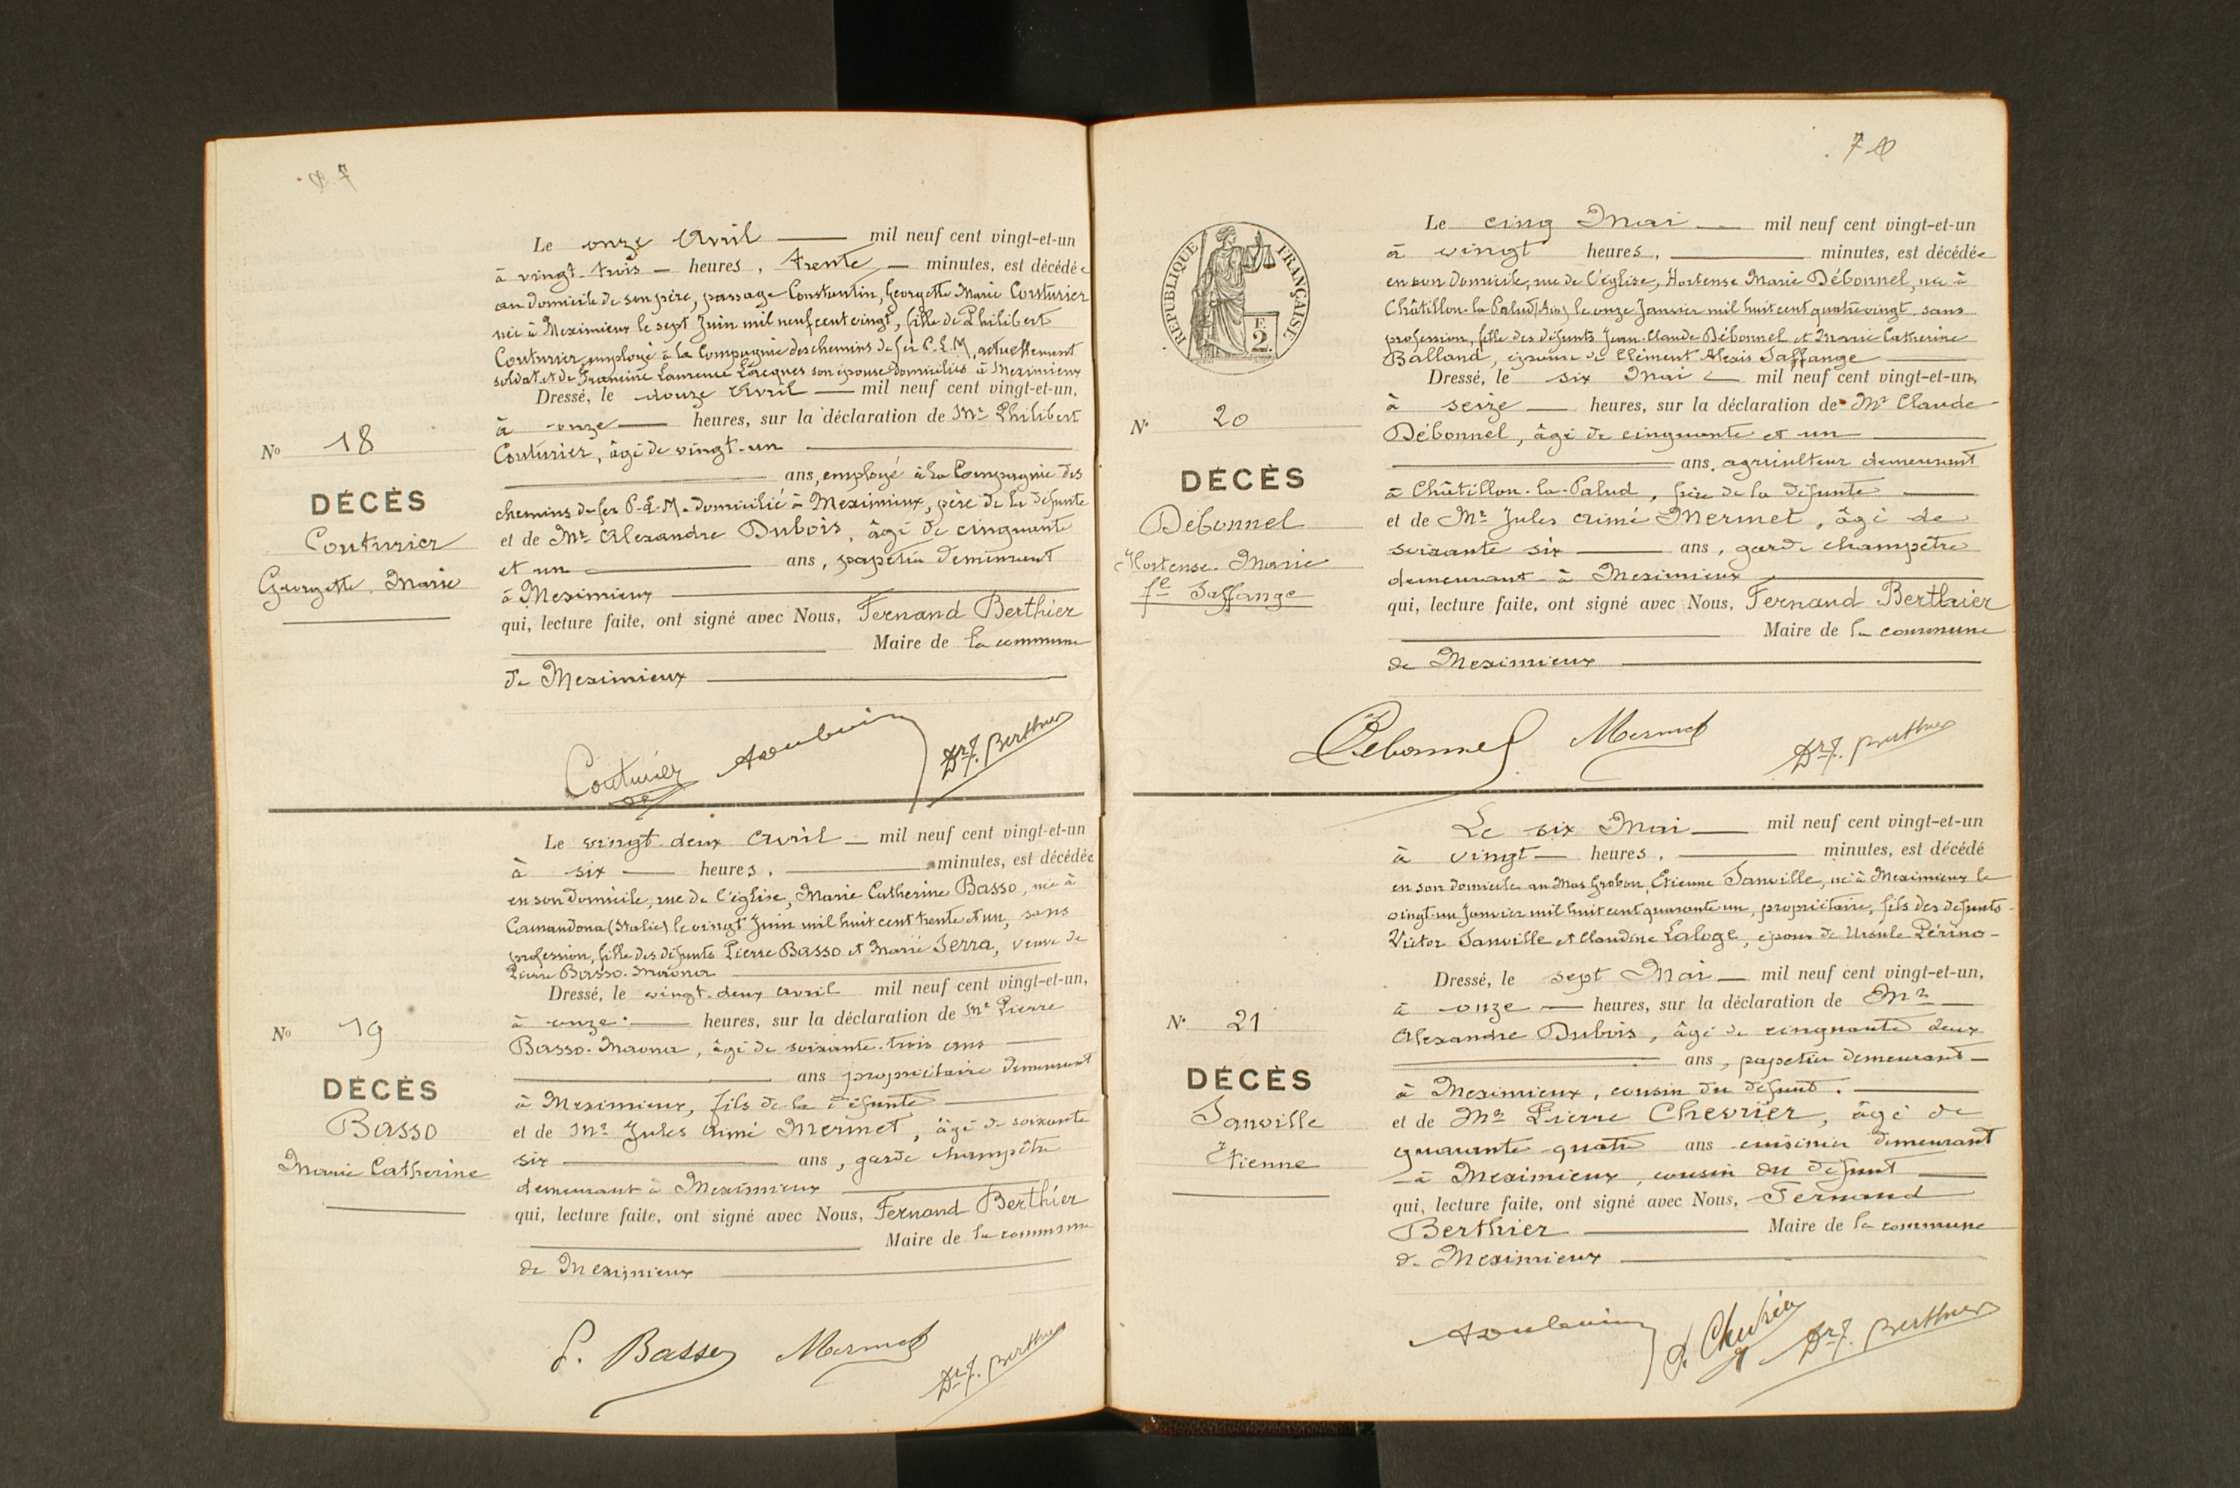 Le onze Avril mil neuf cent vingt-et-un
à vingt-trois heures, trente minutes, est décédée
au domicile de son père, passage Constantin, Georgette Marie Couturier
née à Meximieux le sept Juin mil neuf cent vingt, fille de Philibert
Couturier employé à la Compagnie des chemins de fer P.L.M, actuellement
soldat et de Francine Laurence son épouse domiciliés à Meximieux
Dressé, le douze Avril mil neuf cent vingt-et-un,
à onze heures, sur la déclaration de Mr Philibert
No 18
Couturier, âgé de vingt-un
ans, employé à la Compagnie des
DÉCÈS
chemins de fer P.L.M. domicilié à Meximieux, père de la défunte
Couturier
et de Mr Alexandre Dubois, âgé de cinquante
Georgette Marie
et un ans, papetier demeurant
à Meximieux
qui, lecture faite, ont signé avec Nous, Fernand Berthier
Maire de la commune
de Meximieux
Couturier Dr f. Berthier
Le vingt-deux Avril mil neuf cent vingt-et-un
à six heures, minutes, est décédée
en son domicile, rue de l'église, Marie Catherine Basso, née à
Camandona (Italie) le vingt Juin mil huit cent trente et un, sans
profession, fille des défunts Pierre Basso et Marie Serra, veuve de
Pierre Basso-Maona
Dressé, le vingt-deux Avril mil neuf cent vingt-et-un,
No 19
à onze heures, sur la déclaration de Mr Pierre
Basso-Maona, âgé de soixante-trois ans
DÉCÈS
ans propriétaire demeurant
Basso
à Meximieux, fils de la défunte
et de Mr Jules Aimé Mermet, âgé de soixante
Marie Catherine
six ans, garde champêtre
demeurant à Meximieux
qui, lecture faite, ont signé avec Nous, Fernand Berthier
Maire de la commune
de Meximieux
P. Basso Mermet Dr f. Berthier
7
RÉPUBLIQUE FRANÇAISE
F. 2
Le cinq Mai mil neuf cent vingt-et-un
à vingt heures, minutes, est décédée
en son domicile, rue de l'église, Hortense Marie Débonnel, née à
Châtillon-la-Palud (Ain) le onze Janvier mil huit cent quatre vingt, sans
profession, fille des défunts Jean-Claude Débonnel et Marie Catherine
Balland, épouse de Clément Alexis Jaffange
Dressé, le six Mai mil neuf cent vingt-et-un,
à seize heures, sur la déclaration de Mr Claude
N° 20
Débonnel, âgé de cinquante et un
ans, agriculteur demeurant
DÉCÈS
à Châtillon-la-Palud, frère de la défunte
Débonnel
et de Mr Jules Aimé Mermet, âgé de
Hortense-Marie
soixante six ans, garde champêtre
fe Jaffange
demeurant à Meximieux
qui, lecture faite, ont signé avec Nous, Fernand Berthier
Maire de la commune
de Meximieux
Debonnel Mermet Dr f. Berthier
Le six Mai mil neuf cent vingt-et-un
à vingt heures, minutes, est décédé
en son domicile au Mas Grobon, Etienne Janville, né à Meximieux le
vingt-un Janvier mil huit cent quarante un, propriétaire, fils des défunts
Victor Janville et Claudine Laloge, époux de Ursule Périno
Dressé, le sept Mai mil neuf cent vingt-et-un,
à onze heures, sur la déclaration de Mr
N° 21
Alexandre Dubois, âgé de cinquante deux
ans, papetier demeurant
DÉCÈS
à Meximieux, cousin du défunt.
Janville
et de Mr Pierre Chevrier, âgé de
Etienne
quarante-quatre ans cuisinier demeurant
à Meximieux, cousin du défunt
qui, lecture faite, ont signé avec Nous, Fernand
Berthier Maire de la commune
de Meximieux
P. Chevrier Dr f. Berthier